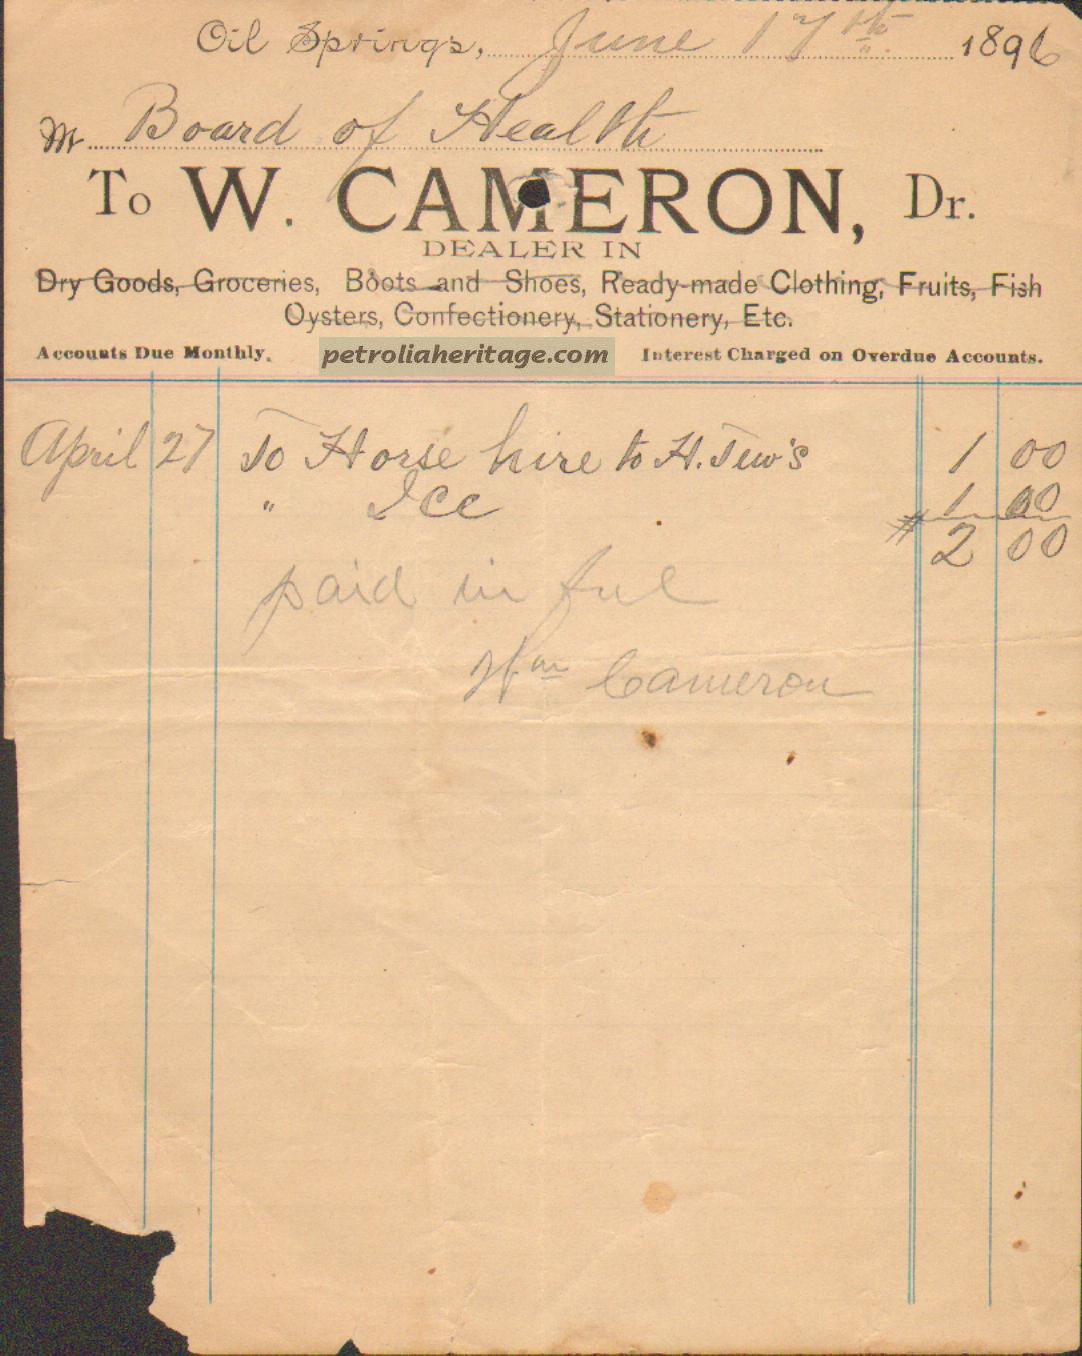 Oil Springs, June 17th 1896
Mr Board of Health
To W. CAMERON, Dr.
DEALER IN
Dry Goods, Groceries, Boots and Shoes, Ready-made Clothing, Fruits, Fish
Oysters, Confectionery, Stationery, Etc.
Accounts Due Monthly. petroliaheritage.com Interest Charged on Overdue Accounts.
April 27 To Horse hire to H. Tew's 1 00
" Ice 1 00
$ 2 00
paid in ful
Wm Cameron